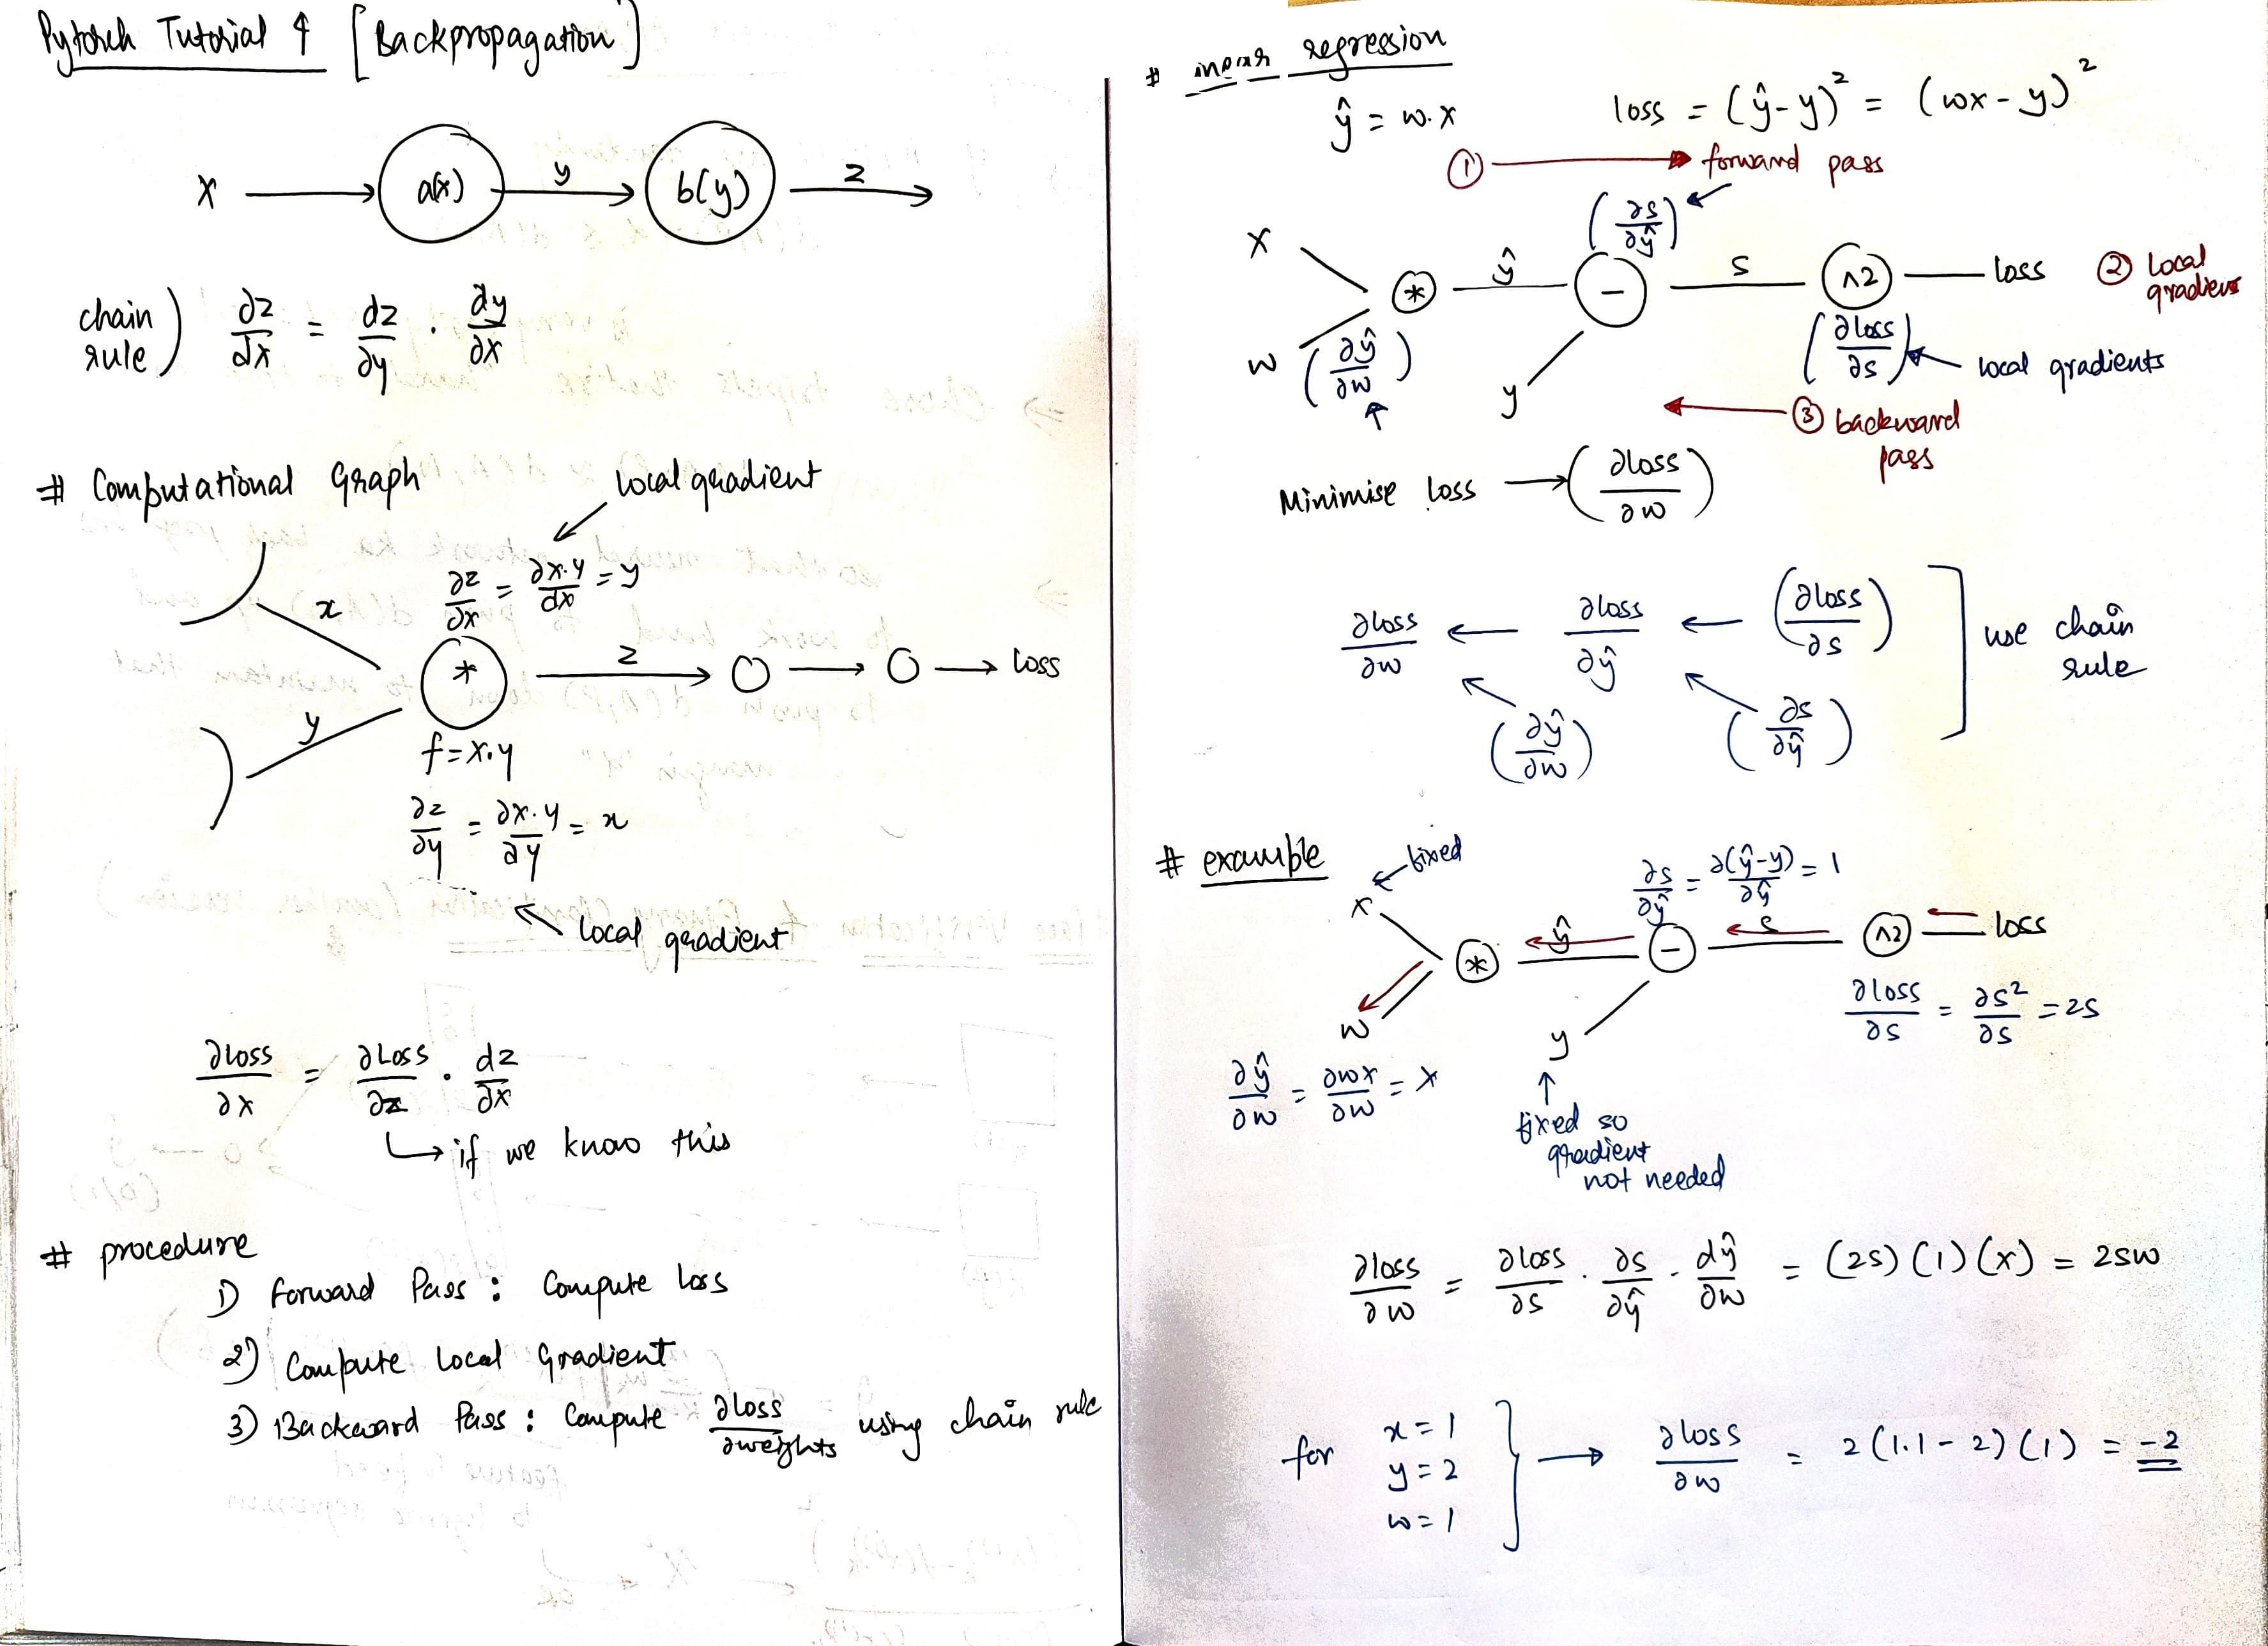 Pytorch Tutorial 4 [Backpropagation]
x a(x) y b(y) z
chain rule) ∂z/dx = dz/∂y · dy/∂x
# Computational Graph
local gradient
∂z/∂x = ∂x.y/dx = y
x
* z loss
y
f = x.y
∂z/∂y = ∂x.y/∂y = x
local gradient
∂loss/∂x = ∂Loss/∂z · dz/∂x
if we know this
# procedure
1) Forward Pass : Compute loss
2) Compute Local Gradient
3) Backward Pass : Compute ∂loss/∂weights using chain rule
# regression
ŷ = w.x loss = (ŷ-y)² = (wx-y)²
① forward pass
(∂s/∂ŷ)
x
* ŷ - s ^2 loss ② local gradient
w (∂ŷ/∂w) y (∂loss/∂s) local gradients
③ backward pass
Minimise loss → (∂loss/∂w)
∂loss/∂w ← ∂loss/∂ŷ ← (∂loss/∂s)
(∂ŷ/∂w) (∂s/∂ŷ)
use chain rule
# example
fixed
x
∂s/∂ŷ = ∂(ŷ-y)/∂ŷ = 1
* ŷ - s ^2 loss
w
y
∂loss/∂s = ∂s²/∂s = 2s
∂ŷ/∂w = ∂wx/∂w = x
fixed so
gradient
not needed
∂loss/∂w = ∂loss/∂s · ∂s/∂ŷ · dŷ/∂w = (2s)(1)(x) = 2sw
for x = 1
y = 2
w = 1
→ ∂loss/∂w = 2(1.1-2)(1) = -2